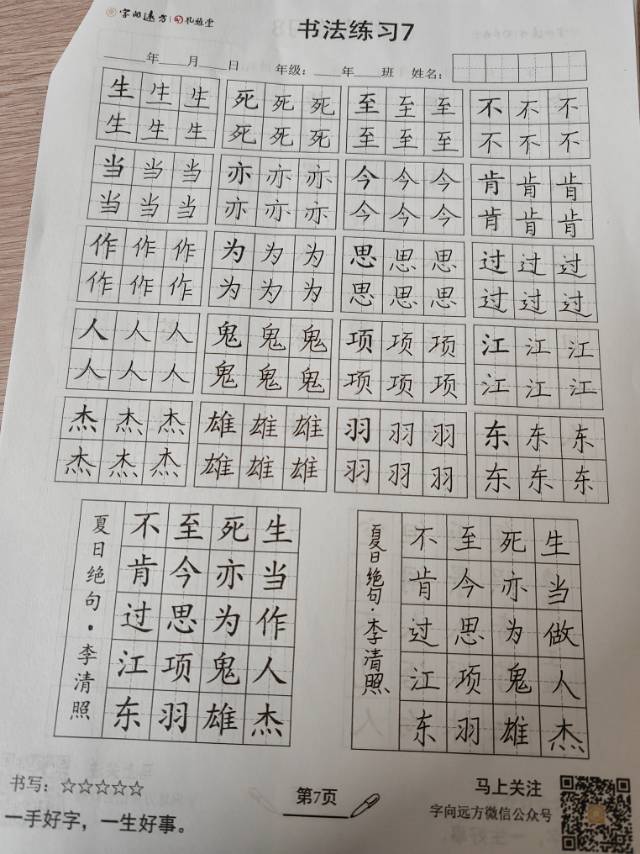 字向远方 礼慈堂
书法练习7
年 月 日 年级: 年 班 姓名:
生生生 死死死 至至至 不不不
生生生 死死死 至至至 不不不
当当当 亦亦亦 今今今 肯肯肯
当当当 亦亦亦 今今今 肯肯肯
作作作 为为为 思思思 过过过
作作作 为为为 思思思 过过过
人人人 鬼鬼鬼 项项项 江江江
人人人 鬼鬼鬼 项项项 江江江
杰杰杰 雄雄雄 羽羽羽 东东东
杰杰杰 雄雄雄 羽羽羽 东东东
生当作人杰
死亦为鬼雄
至今思项羽
不肯过江东
夏日绝句·李清照
生当做人杰
死亦为鬼雄
至今思项羽
不肯过江东
夏日绝句·李清照
书写: ☆☆☆☆☆
一手好字，一生好事。
第7页
马上关注
字向远方微信公众号